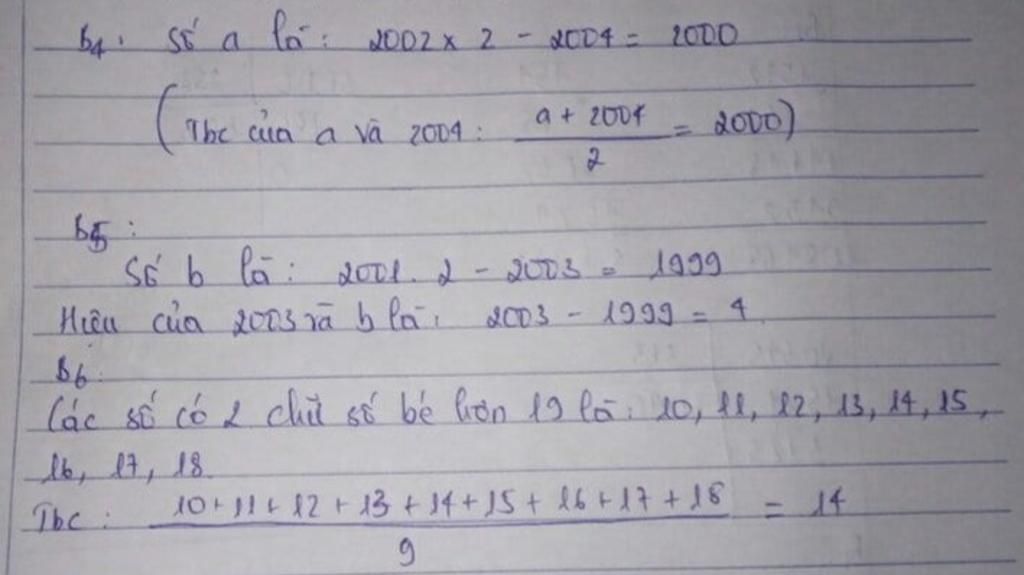 B4: Số a là: 2002 x 2 - 2004 = 2000
(Tbc của a và 2004: \frac{a + 2004}{2} = 2000)
B5:
Số b là: 2001.2 - 2003 = 1999
Hiệu của 2003 và b là: 2003 - 1999 = 4
B6:
Các số có 2 chữ số bé hơn 19 là: 10, 11, 12, 13, 14, 15,
16, 17, 18
Tbc: \frac{10+11+12+13+14+15+16+17+18}{9} = 14